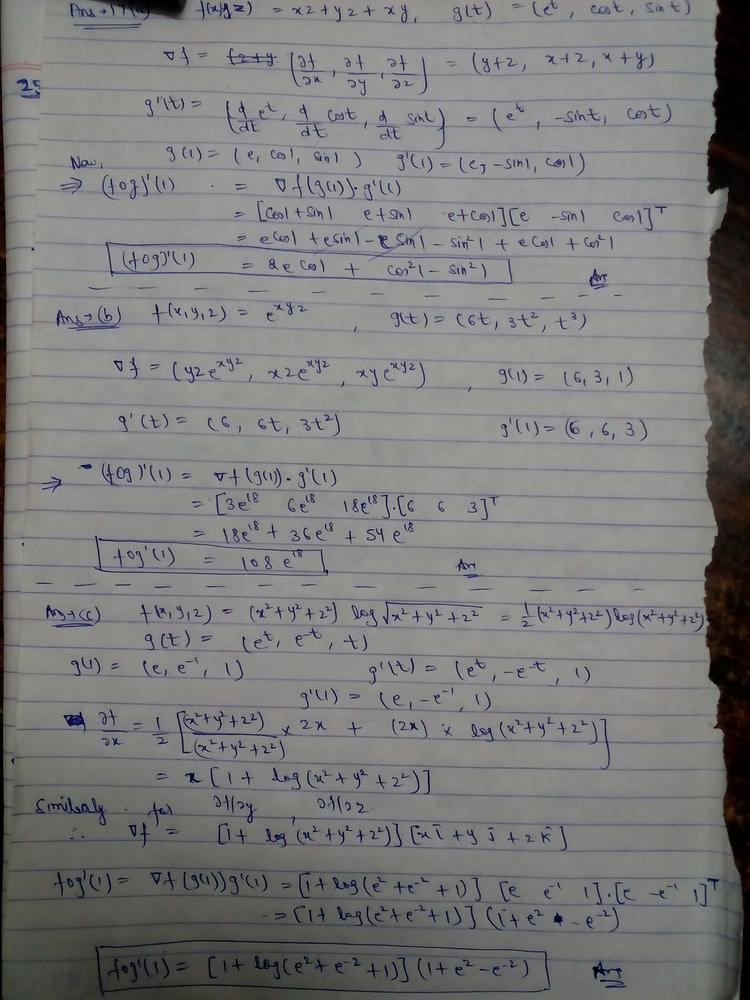 Ans→17(a) f(x,y,z) = xz + yz + xy, g(t) = (e^t, cost, sint)
∇f = (∂f/∂x, ∂f/∂y, ∂f/∂z) = (y+z, x+z, x+y)
25
g'(t) = (d/dt e^t, d/dt cost, d/dt sint) = (e^t, -sint, cost)
Now, g(1) = (e, cos1, sin1) g'(1) = (e, -sin1, cos1)
⇒ (fog)'(1) = ∇f(g(1)).g'(1)
= [cos1+sin1 e+sin1 e+cos1][e -sin1 cos1]^T
= ecos1 + esin1 - esin1 - sin²1 + ecos1 + cos²1
(fog)'(1) = 2ecos1 + cos²1 - sin²1 Ans
Ans→(b) f(x,y,z) = e^xyz , g(t) = (6t, 3t², t³)
∇f = (yze^xyz, xze^xyz, xye^xyz) , g(1) = (6, 3, 1)
g'(t) = (6, 6t, 3t²) g'(1) = (6, 6, 3)
⇒ (fog)'(1) = ∇f(g(1)).g'(1)
= [3e^18 6e^18 18e^18].[6 6 3]^T
= 18e^18 + 36e^18 + 54e^18
fog'(1) = 108 e^18 Ans
Ans→(c) f(x,y,z) = (x²+y²+z²) log√x²+y²+z² = 1/2(x²+y²+z²)log(x²+y²+z²)
g(t) = (e^t, e^-t, t)
g(1) = (e, e^-1, 1) g'(t) = (e^t, -e^-t, 1)
g'(1) = (e, -e^-1, 1)
∂f/∂x = 1/2 [(x²+y²+z²)/(x²+y²+z²) × 2x + (2x) × log(x²+y²+z²)]
= x[1 + log(x²+y²+z²)]
Similarly for ∂f/∂y, ∂f/∂z
∴ ∇f = [1+ log(x²+y²+z²)][xî + yĵ + zk̂]
fog'(1) = ∇f(g(1))g'(1) = [1+log(e²+e^-2+1)] [e e^-1 1].[e -e^-1 1]^T
= [1+log(e²+e^-2+1)] (1+e² - e^-2)
fog'(1) = [1+log(e²+e^-2+1)] (1+e²-e^-2) Ans